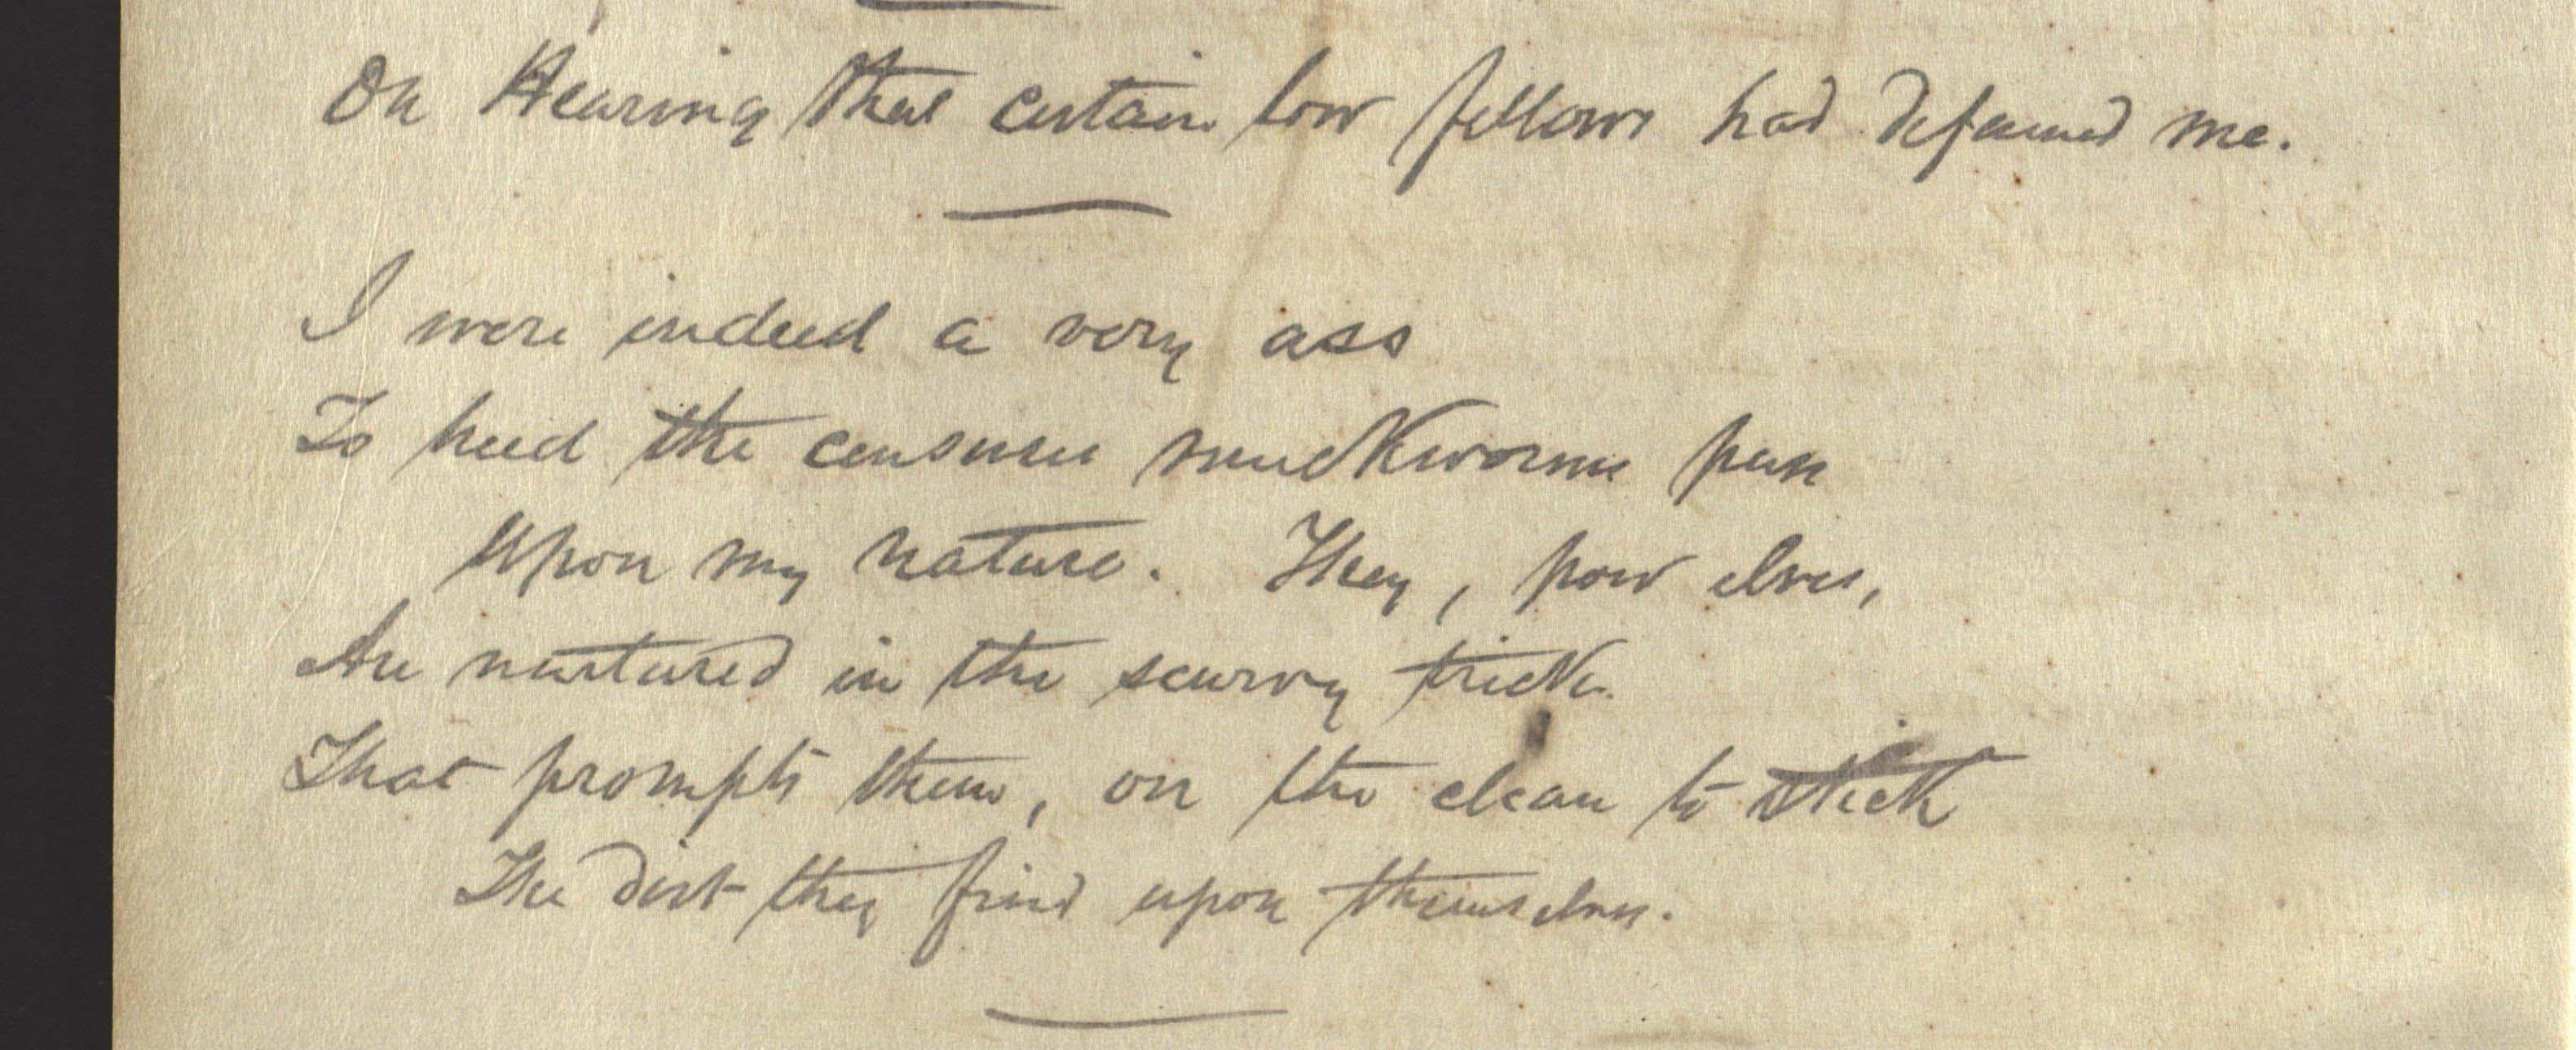 On Hearing that certain low fellows had defamed me.
I were indeed a very ass
To heed the censures muckworms pass
Upon my nature. They, poor elves,
Are nurtured in the scurvy trick
That prompts them, on the clean to stick
The dirt they find upon themselves.